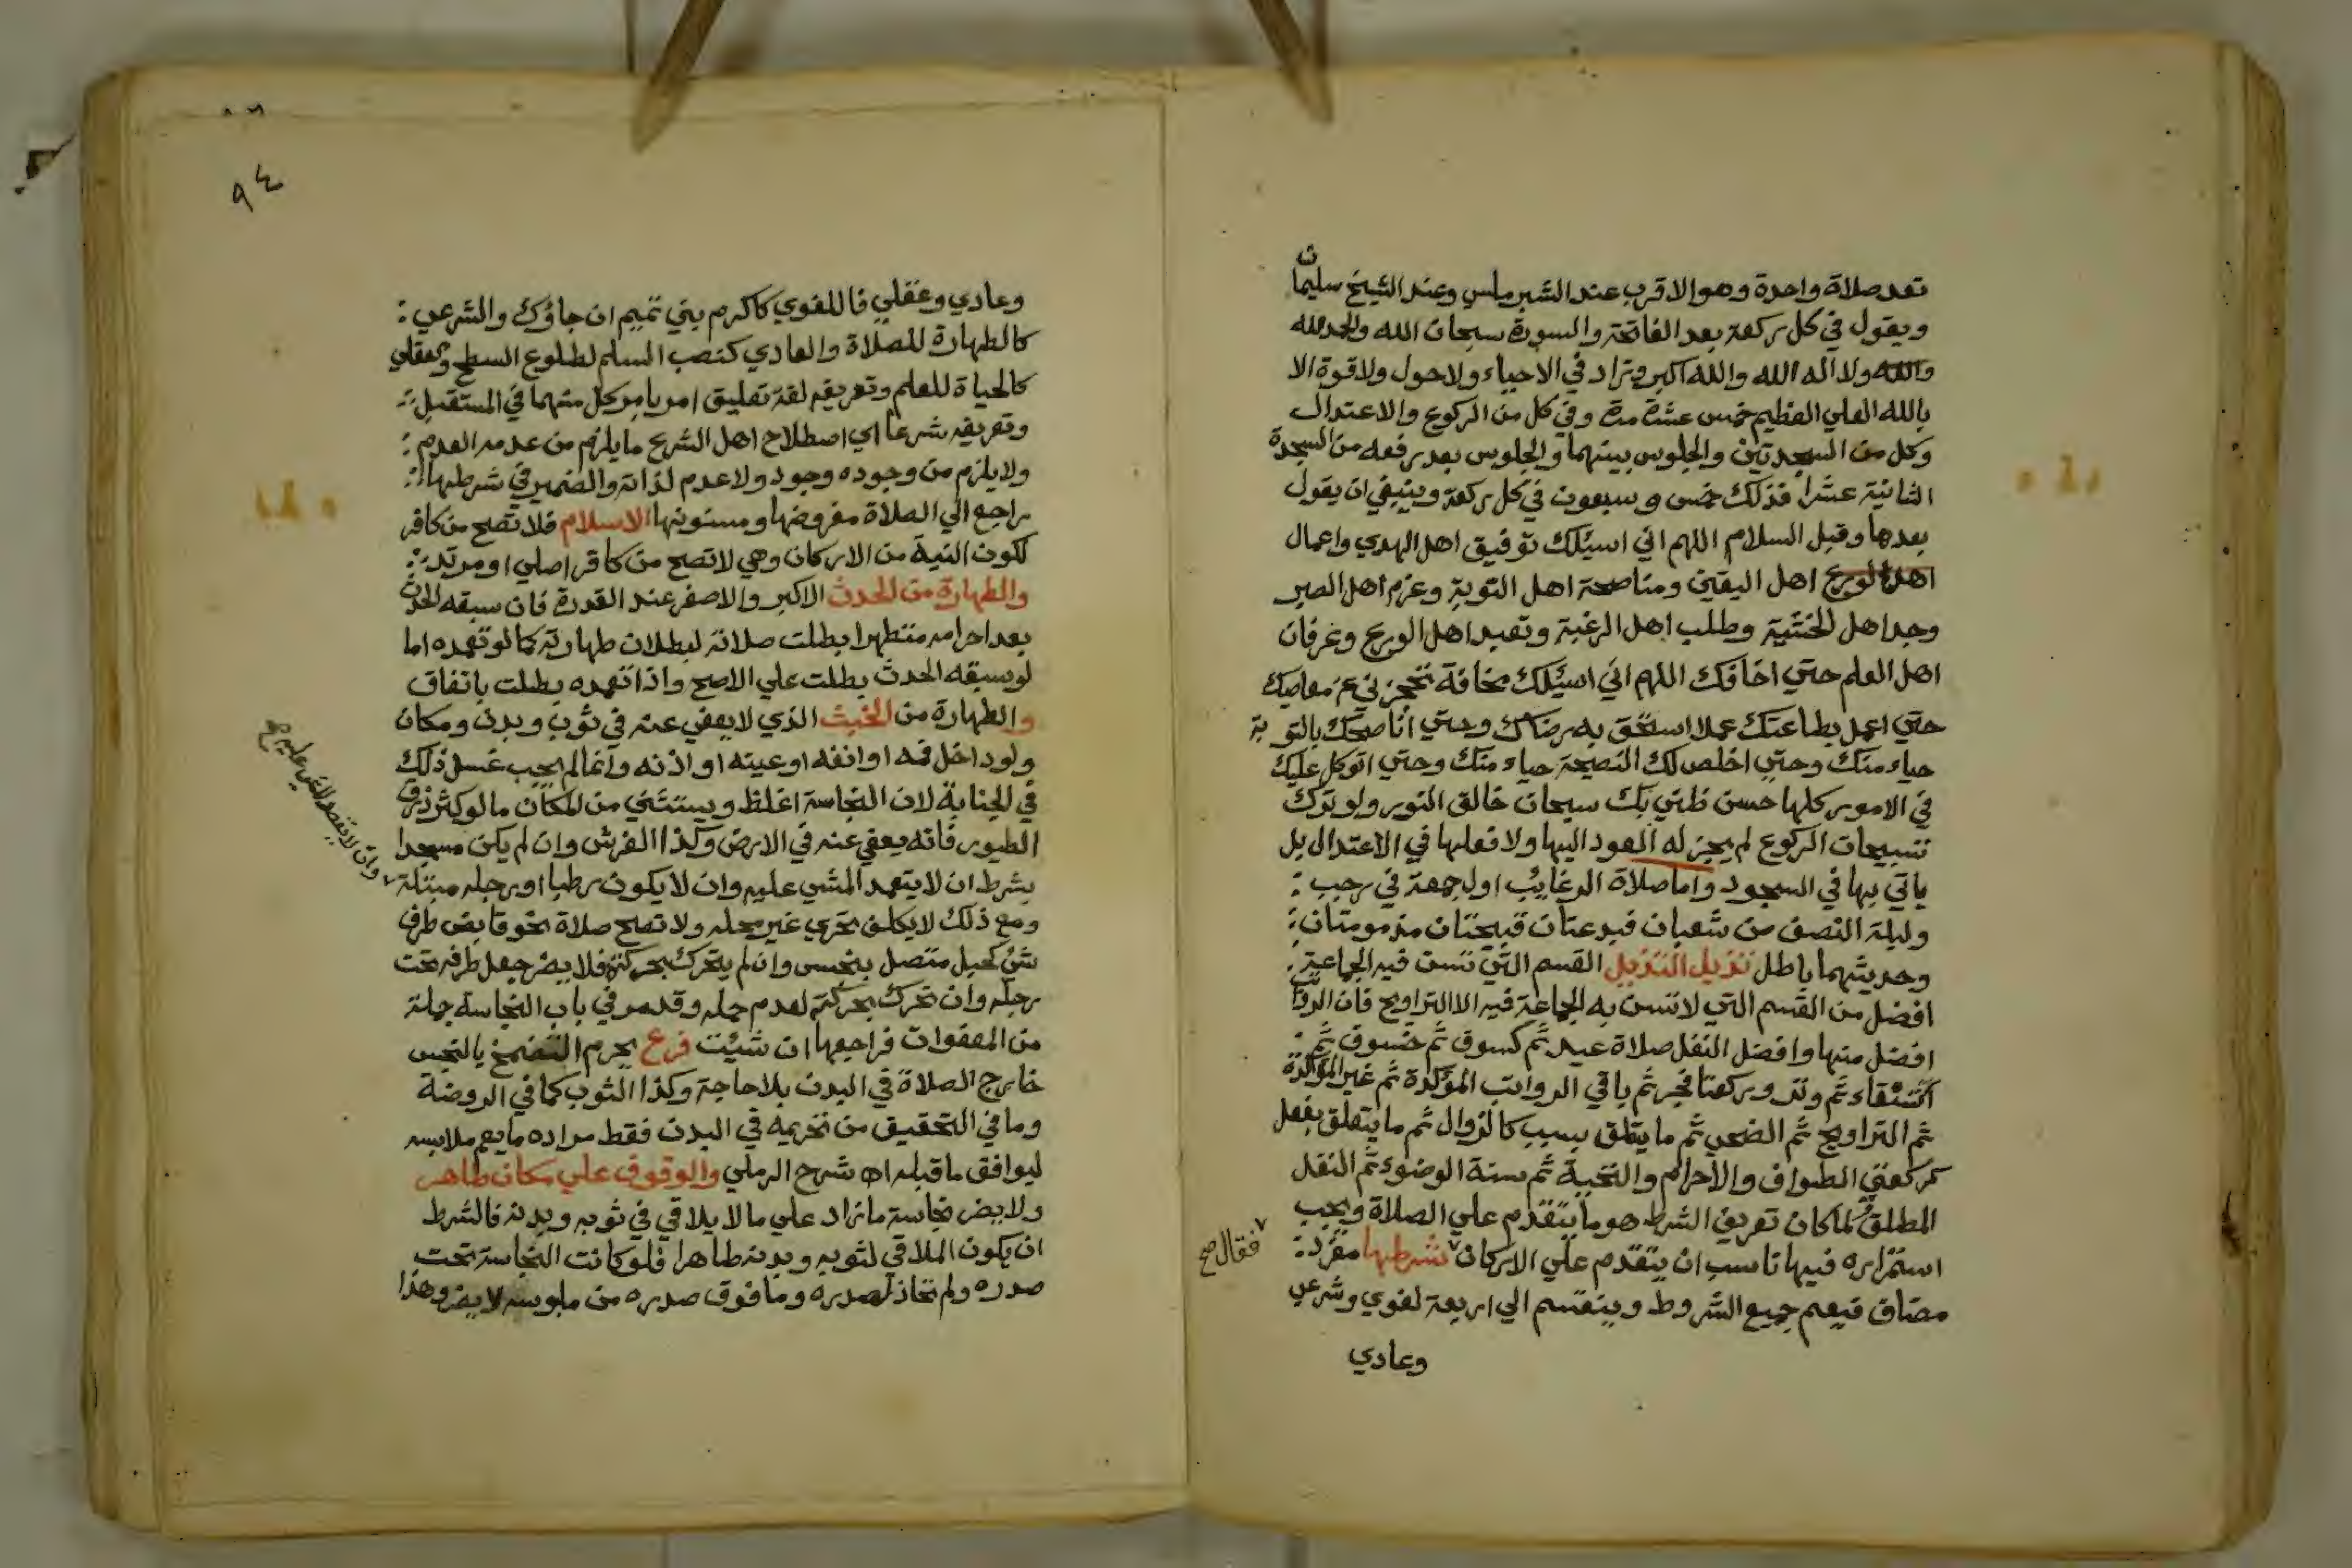 تعد صلاة واحدة وهو الاقرب عند الشبرملسي وعند الشيخ سليمان
ويقول في كل ركعة بعد الفاتحة والسورة سبحان الله والحمد لله
والله ولا اله الا الله والله اكبر وتزاد في الاحياء ولا حول ولا قوة الا
بالله العلي العظيم خمس عشرة مرة وفي كل من الركوع والاعتدال
وكل من السجدتين والجلوس بينهما والجلوس بعد رفعه من السجدة
الثانية عشرا فذلك خمس وسبعون في كل ركعة وينبغي ان يقول
بعدها وقبل السلام اللهم اني اسئلك توفيق اهل الهدي واعمال
اهل الورع اهل اليقين ومناصحة اهل التوبة وعزم اهل الصبر
وجد اهل الخشية وطلب اهل الرغبة وتعبد اهل الورع وعرفان
اهل العلم حتي اخافك اللهم اني اسئلك مخافة تحجزني عن معاصيك
حتي اعمل بطاعتك عملا استحق به رضاك وحتي اناصحك بالتوبة
حياء منك وحتي اخلص لك النصيحة حياء منك وحتي اتوكل عليك
في الامور كلها حسن ظني بك سبحان خالق النور ولو ترك
تسبيحات الركوع لم يجز له العود اليها ولا فعلها في الاعتدال بل
ياتي بها في السجود واما صلاة الرغايب اول جمعة في رجب :
وليلة النصف من شعبان فبدعتان قبيحتان مذمومتان :
وحديثهما باطل تذييل التذييل القسم التي تسن فيه الجماعة
افضل من القسم التي لا تسن به الجماعة فيه الا التراويح فان الرواتب
افضل منها وافضل النفل صلاة عيد ثم كسوف ثم خسوف ثم :
استسقاء ثم وتر وركعتا فجر ثم باقي الرواتب المؤكدة ثم غير المؤكدة
ثم التراويح ثم الضحي ثم ما يتعلق بسبب كالزوال ثم ما يتعلق بفعل
كركعتي الطواف والاحرام والتحية ثم سنة الوضوء ثم النفل
المطلق ولما كان تعريف الشرط هو ما يتقدم علي الصلاة ويجب
استمراره فيها ناسب ان يتقدم علي الاركان شرطها مفرد :
فقال صح
مضاف فيعم جميع الشروط وينقسم الي اربعة لغوي وشرعي
وعادي
٩٤
وعادي وعقلي فاللغوي كاكرم بني تميم ان جاؤك والشرعي :
كالطهارة للصلاة والعادي كنصب السلم لطلوع السطح والعقلي
كالحياة للعلم وتعريفه لغة تعليق امر بامر كل منهما في المستقبل :
وتعريفه شرعا اي اصطلاح اهل الشرع ما يلزم من عدمه العدم :
ولا يلزم من وجوده وجود ولا عدم لذاته والضمير في شرطها :
راجع الي الصلاة مفروضها ومسنونها الاسلام فلا تصح من كافر
لكون النية من الاركان وهي لا تصح من كافر اصلي او مرتد :
والطهارة من الحدث الاكبر والاصغر عند القدرة فان سبقه الحدث
بعد احرامه متطهرا بطلت صلاته لبطلان طهارته كما لو تعمده اما
لو سبقه الحدث بطلت علي الاصح واذا تعمده بطلت باتفاق
والطهارة من الخبث الذي لا يعفي عنه في ثوب وبدن ومكان
ولو داخل فمه او انفه او عينه او اذنه وانما لم يجب غسل ذلك
في الجنابة لان النجاسة اغلظ ويستثني من المكان ما لو كثر ذرق
الطيور فانه يعفي عنه في الارض وكذا الفرش وان لم يكن مسجدا
بشرط ان لا يتعمد المشي عليه وان لا يكون رطبا او رجله مبتلة
ومع ذلك لا يكلف تحري غير محله ولا تصح صلاة نحو قابض طرف
شئ كحبل متصل بنجس وان لم يتحرك بحركته فلا يضر جعل طرفه تحت
رجله وان تحرك بحركته لعدم حمله وقد مر في باب النجاسة جملة
من المعفوات فراجعها ان شئت فرع يحرم التضمخ بالنجس
خارج الصلاة في البدن بلا حاجة وكذا الثوب كما في الروضة
وما في التحقيق من تحريمه في البدن فقط مراده ما يعم ملابسه
ليوافق ما قبله اه شرح الرملي والوقوف علي مكان طاهر
ولا يضر نجاسة ما زاد علي ما لا يلاقي في ثوبه وبدنه فالشرط
ان يكون الملاقي لثوبه وبدنه طاهرا فلو كانت النجاسة تحت
صدره ولم تحاذ لصدره وما فوق صدره من ملبوسه لا يضر وهذا